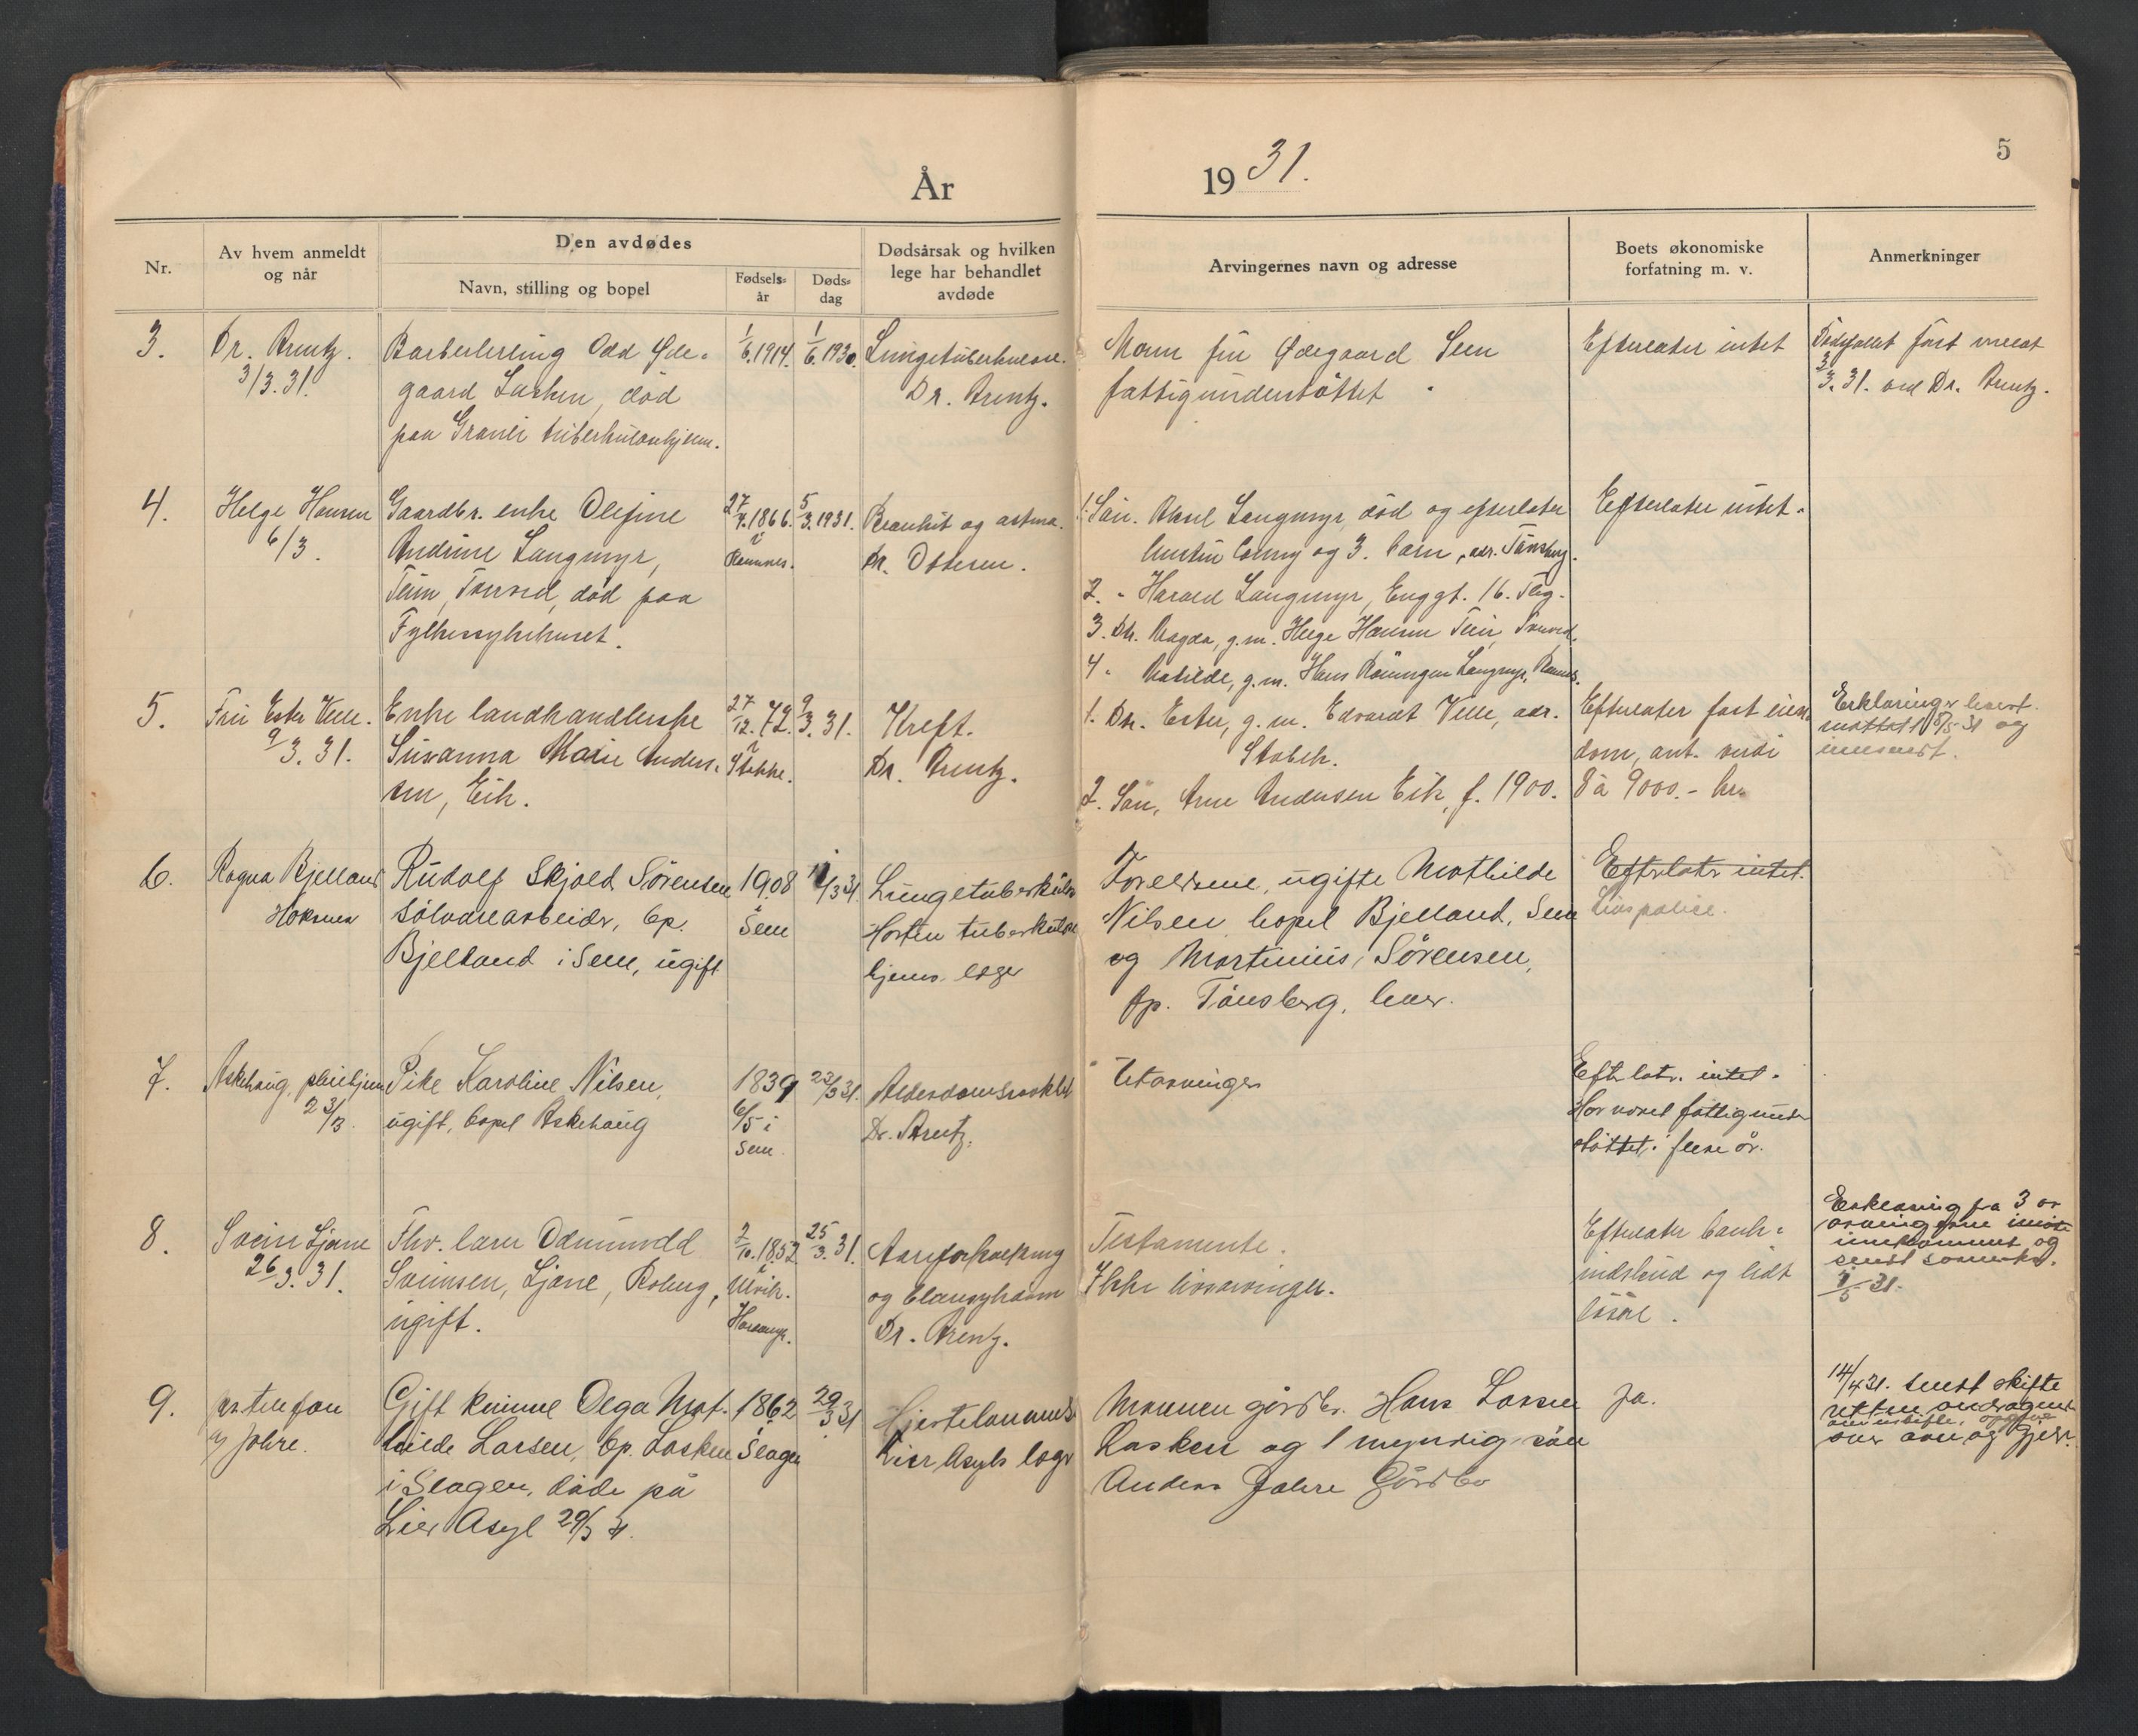 5
År 1931.
Nr.
Av hvem anmeldt
og når
Den avdødes
Navn, stilling og bopel
Fødsels-
år
Døds-
dag
Dødsårsak og hvilken
lege har behandlet
avdøde
Arvingernes navn og adresse
Boets økonomiske
forfatning m. v.
Anmerkninger
3.
Dr. Arentz.
3/3.31.
Barberlærling Odd Øde-
gaard Lasken, død
paa Granli tuberkuloshjem.
1/6.1914.
1/6.1930.
Lungetuberkulose.
Dr. Arentz.
Mann fru Ødegaard Sem
fattigunderstøttet
Efterlater intet
Dødsfallet først meldt
3/3.31. ved Dr. Arentz.
4.
Helge Hansen
6/3.
Gaardbr. enke Olefine
Andrine Langmyr,
død paa
Fylkessykehuset.
1866.
i
Ramnes.
5/3.1931.
Bronkit og astma.
Dr. Ottersen.
1. Søn. Aksel Langmyr, død og efterlater
og 3. barn, adr. Tønsberg.
2. " Harald Langmyr, Enggt. 16. Tbg.
3. Dtr. Magda, g.m. Helge Hansen
4 " Matilde, g.m. Hans Langmyr, Ramnes.
Efterlater intet.
5.
Fru Ester Velle.
9/3.31.
Enke landhandlerske
Susanna Marie Anders-
sen, Eik.
27/12.72.
i
Stokke.
9/3.31.
Kreft.
Dr. Arentz.
1. Dtr. Ester, g.m. Edvardt Velle, adr.
2. Søn, Arne Andersen Eik, f. 1900.
Efterlater fast eien-
dom, ant. verdi
8 à 9000.- kr.
Erklæring levert
mottatt 18/5-31 og
innsendt.
6.
Ragna Bjelland
Rudolf Skjold Sørensen
sølvarearbeider, bp.
Bjelland i Sem, ugift
1908
i
Sem
11/3 31.
Lungetuberkulose
Horten tuberkulose
hjems læge
Foreldrene, ugifte Mathilde
Nilsen, bopel Bjelland, Sem
og Martinius Sørensen,
bp. Tønsberg, lever.
Efterlater intet.
Livspolise.
7.
Askehaug, pleiehjem
23/3.
Pike Karoline Nilsen,
ugift, bopel Askehaug
1839
6/5 i
Sem.
23/3 31.
Alderdomssvakhet
Dr. Arentz.
Utarvinger
Efterlater intet.
Har været fattigunder
støttet i flere år.
8.
Svein Ljone
26/3.31.
Fhv. lærer Odmund
Sveinsen, Ljone,
ugift.
2/10.1852.
i
Ulvik.
Hardanger.
25/3.31.
Aareforkalkning
og
Dr. Arentz.
Testamente.
Ikke livsarvinger.
Efterlater bank-
indskud og lidt
løsøre.
Erklæring fra 3 av
arvingerne
innkommet og
sendt
7/5 31.
9.
pr. telefon
Jahre.
Gift kvinne Olga Mat-
hilde Larsen, bp. Lasken
i Slagen, døde på
Lier Asyl 29/3 31.
1862
i
Slagen
29/3 31
Hjertelammelse
Lier Asyls læge
Mannen gårdbr. Hans Larsen
Lasken og 1 myndig søn
Anders Jahre Gårdbr.
Ja.
14/4 31. sendt skifte
retten andragende
om uskifte, opgave
over aktiv og gjeld.